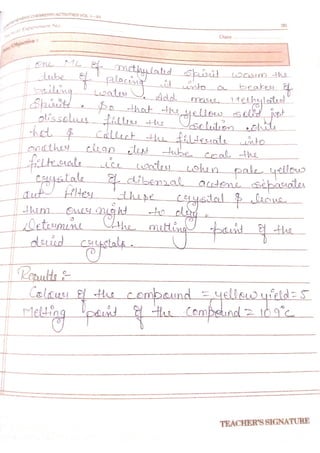 CHEMISTRY ACTIVITIES VOL. I
Experiment No.
Date
Objective :
one ML of methylated spirit warm the
tube of placing it into a beaker of
boiling water. Add more Methylated
Spirit. So that the yellow solid just
dissolves filter the solution while
hot & Collect the filterate into
another clean test tube coal the
filterate ice water when pale yellow
crystals of dibenzal acetone separates
out filter these crystal & leave
them over night to dry.
Determine the melting point of the
dried crystals.
Results :-
Colour of the compound = yellow yield = 5
Melting point of the Compound = 109°c
TEACHER'S SIGNATURE